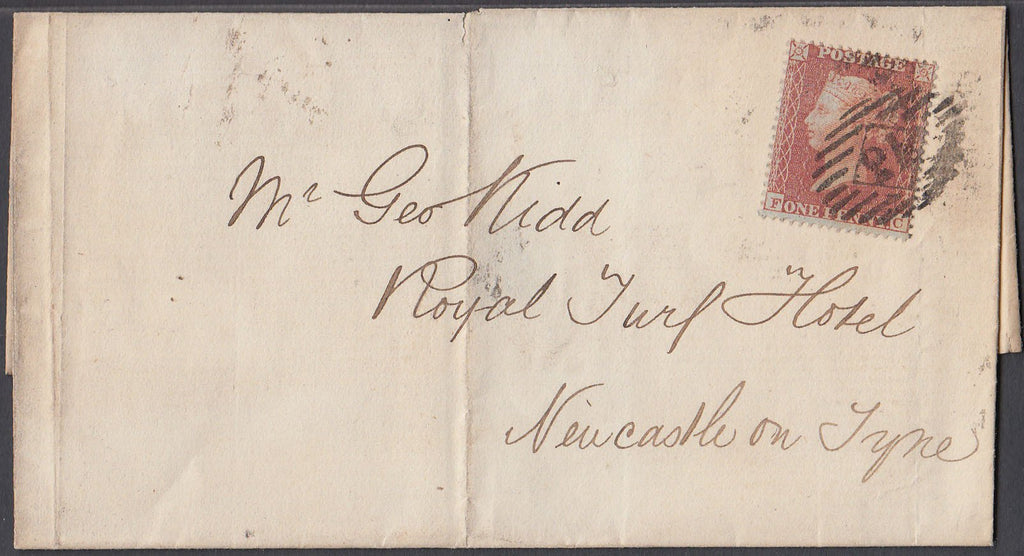 POSTAGE
F ONE PENNY C
Mr Geo Kidd
Royal Turf Hotel
Newcastle on Tyne